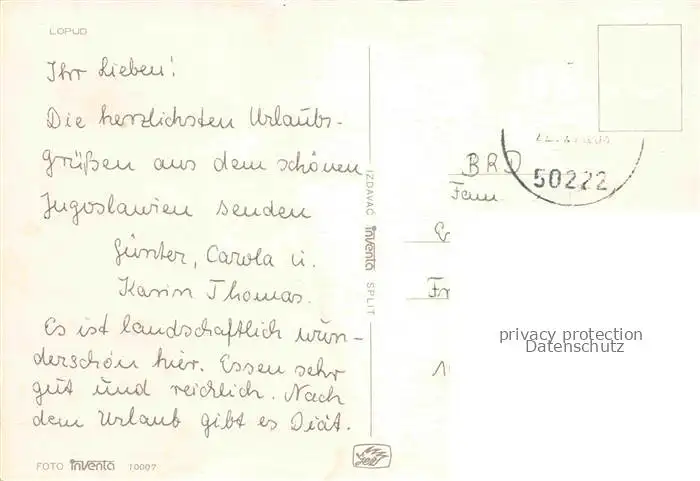 LOPUD
Ihr Lieben!
Die herzlichsten Urlaubs-
grüßen aus dem schönen
Jugoslawien senden
Günter, Carola u.
Karin Thomas.
Es ist landschaftlich wun-
derschön hier. Essen sehr
gut und reichlich. Nach
dem Urlaub gibt es Diät.
FOTO inventa 10007
IZDAVAČ inventa SPLIT
50222
BRD
Fam.
privacy protection
Datenschutz